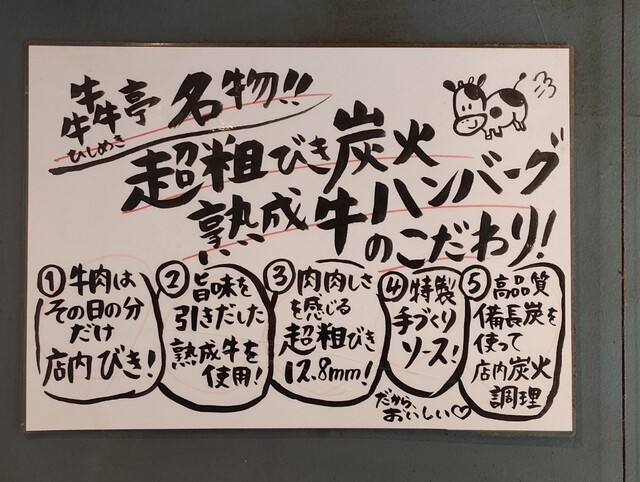 犇亭 名物!!
ひしめき
超粗びき炭火
熟成牛ハンバーグ
のこだわり!
① 牛肉は
その日の分
だけ
店内びき!
② 旨味を
引きだした
熟成牛を
使用!
③ 肉肉しさ
を感じる
超粗びき
12.8mm!
④ 特製
手づくり
ソース!
だから、
おいしい♡
⑤ 高品質
備長炭を
使って
店内炭火
調理